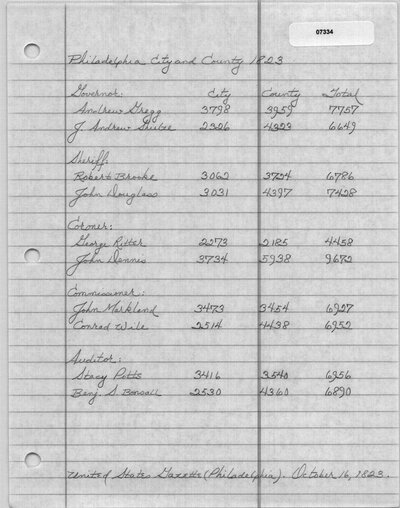 07334
Philadelphia City and County 1823
Governor: City County Total
Andrew Gregg 3798 3959 7757
J. Andrew Shulze 2326 4323 6649
Sheriff:
Robert Brooke 3062 3724 6786
John Douglass 3031 4397 7428
Coroner:
George Ritter 2273 2185 4458
John Dennis 3734 5938 9672
Commissioner:
John Markland 3473 3454 6927
Conrad Wile 2514 4438 6952
Auditor:
Stacy Potts 3416 3540 6956
Benj. S. Bonsall 2530 4360 6890
United States Gazette (Philadelphia). October 16, 1823.